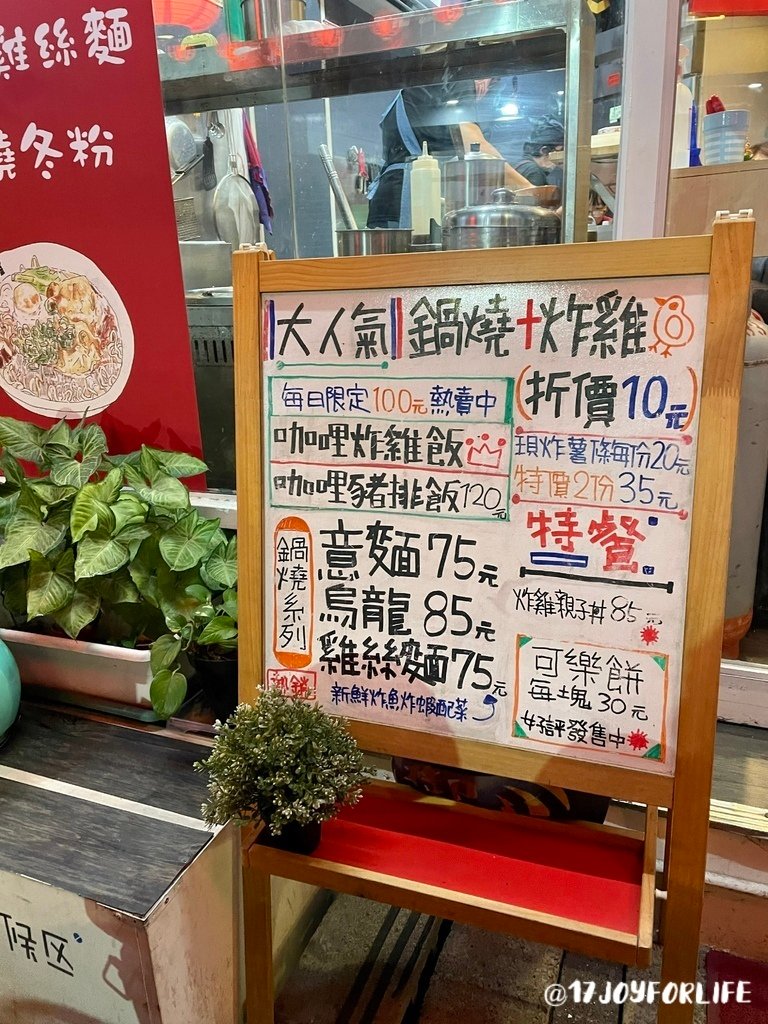 雞絲麵
燒冬粉
大人氣 鍋燒+炸雞
(折價10元)
每日限定100元熱賣中
咖哩炸雞飯
咖哩豬排飯120元
現炸薯條每份20元
特價2份35元
特餐
炸雞親子丼85元
鍋燒系列
意麵75元
烏龍85元
雞絲麵75元
熱銷
新鮮炸魚炸蝦配菜
可樂餅
每塊30元
好評發售中
@17JOYFORLIFE